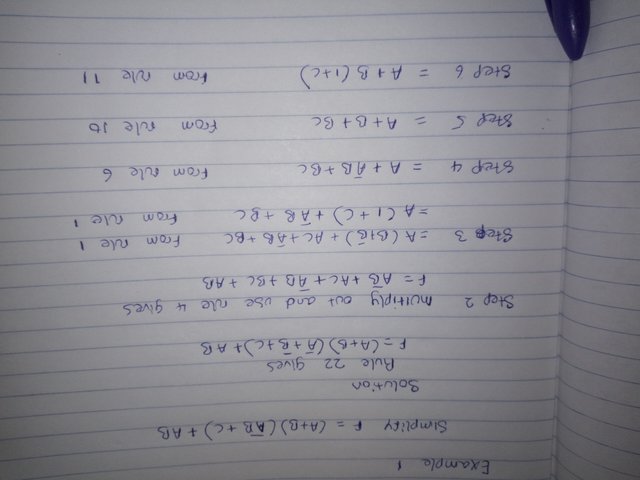 Example 1
Simplify F = (A+B)(A̅B̅+C)+AB
Solution
Rule 22 gives
F=(A+B)(A̅+B̅+C)+AB
Step 2 multiply out and use rule 4 gives
F = AB̅ + AC + A̅B + BC + AB
Step 3 =A(B+B̅)+AC+A̅B+BC from rule 1
=A(1+C)+A̅B+BC from rule 1
Step 4 = A+A̅B+BC from rule 6
Step 5 = A+B+BC from rule 10
Step 6 = A+B(1+C) from rule 11